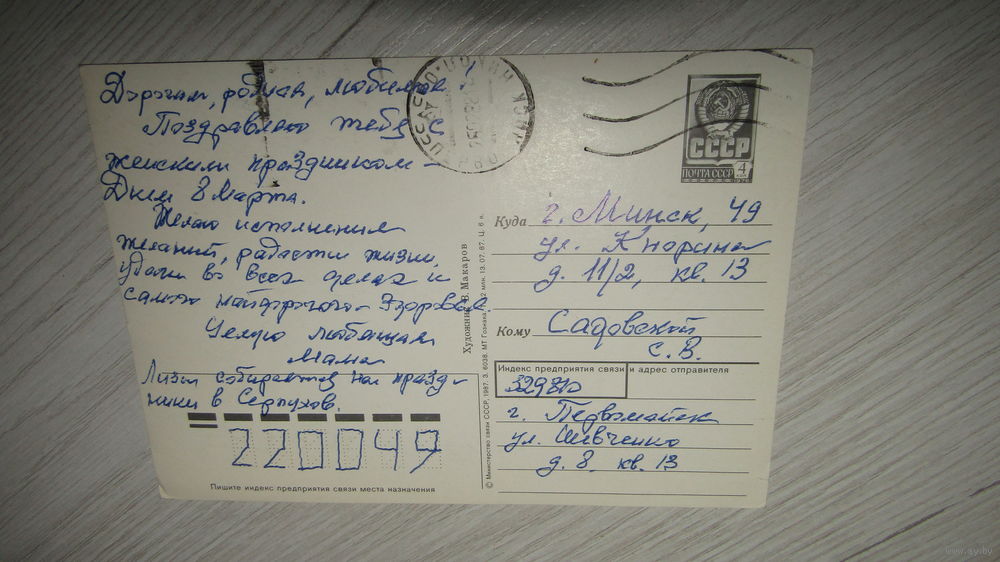 Дорогая, родная, любимая!
Поздравляю тебя с
женским праздником –
Днем 8 Марта.
Желаю исполнения
желаний, радости жизни,
удачи во всех делах и
самого найдорогого – здоровья.
Целую любящая
Мама
Лизы собирается на празд-
ники в Серпухов.
220049
Пишите индекс предприятия связи места назначения
Художник В. Макаров
© Министерство связи СССР, 1987. З. 6038. МТ Гознака. 2 млн. 13. 07. 87. Ц. 6 к.
СССР
ПОЧТА СССР 4
Куда г. Минск, 49
ул. Кнорина
д. 11/2, кв. 13
Кому Садовской
С. В.
Индекс предприятия связи и адрес отправителя
329810
г. Первомайск
ул. Шевченко
д. 8. кв. 13
www.ay.by